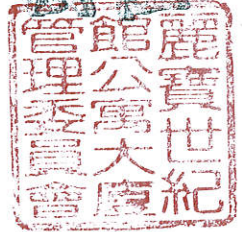 麗寶世紀
館公寓大廈
管理委員會